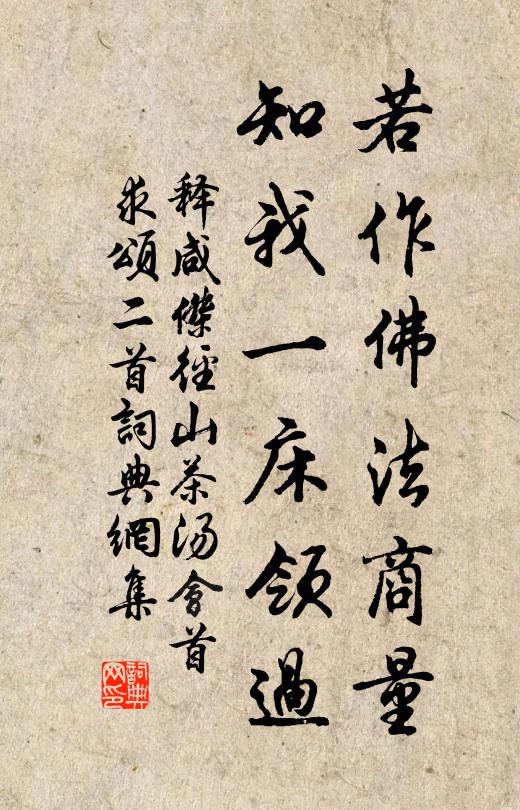 若作佛法商量
知我一床領過
释咸傑徑山茶汤會首
求頌二首詞典網集
詞典
网印